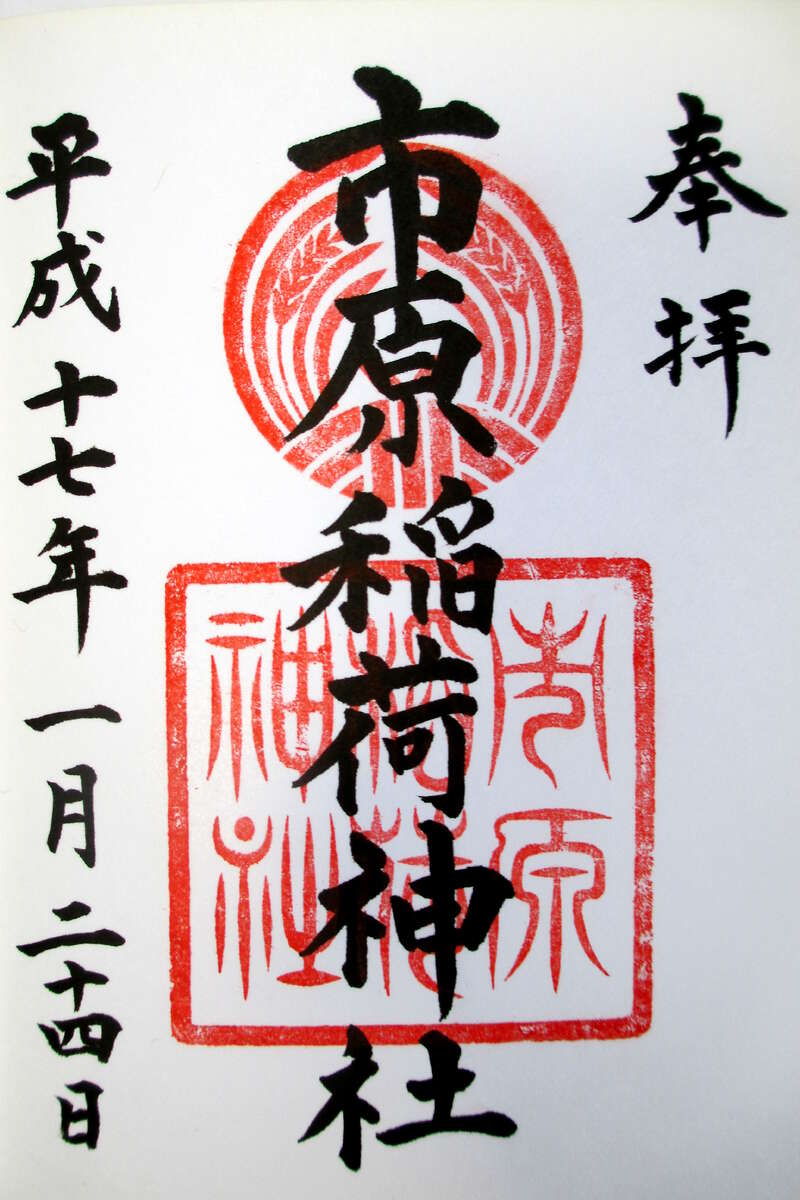 奉拝
市原稲荷神社
市原
稲荷
神社
平成十七年一月二十四日